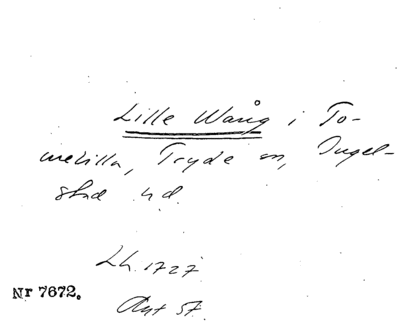 Lille Wång i To-
melilla, Tryde sn, Ingel-
stad hd.
Lh. 1727
Nr 7672.
Akt 57